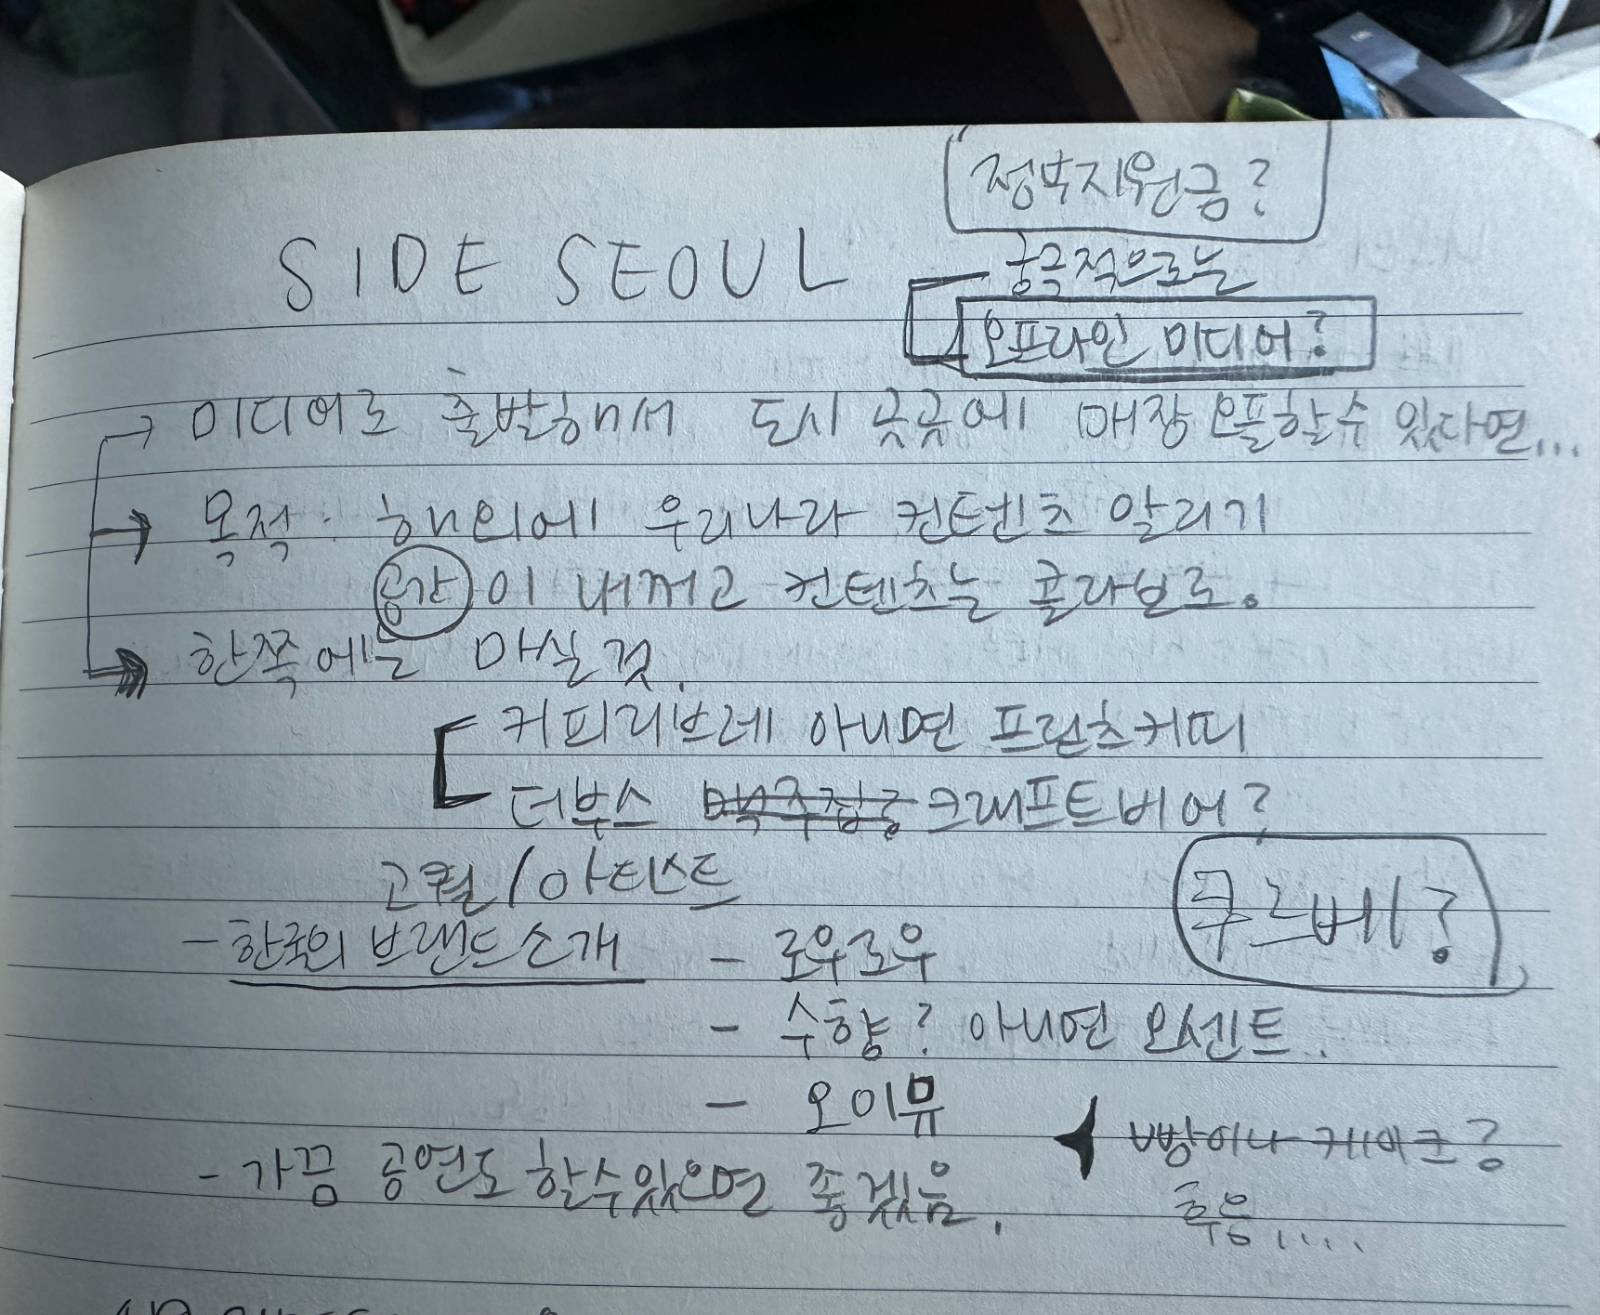 정부지원금?
SIDE SEOUL
궁극적으로는
오프라인 미디어?
→ 미디어로 출발해서 도시 곳곳에 매장 오픈할수 있다면...
→ 목적: 해외에 우리나라 컨텐츠 알리기
공간이 내꺼고 컨텐츠는 콜라보로。
한쪽에는 마실것.
커피리브레 아니면 프릳츠커피
더부스 맥주집중 크래프트비어?
고퀄/아티스트
쿠르베?
- 한국의 브랜드소개
- 로우로우
- 수향? 아니면 오센트.
- 오이뮤
빵이나 케이크?
- 가끔 공연도 할수있으면 좋겠음.
흐음....